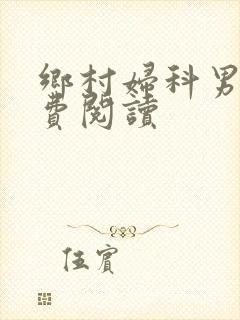 鄉村婦科男
費閱讀
伍賓